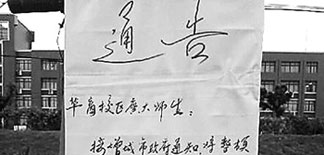 通告
华商校区广大师生:
接增城市政府通知,将暂停